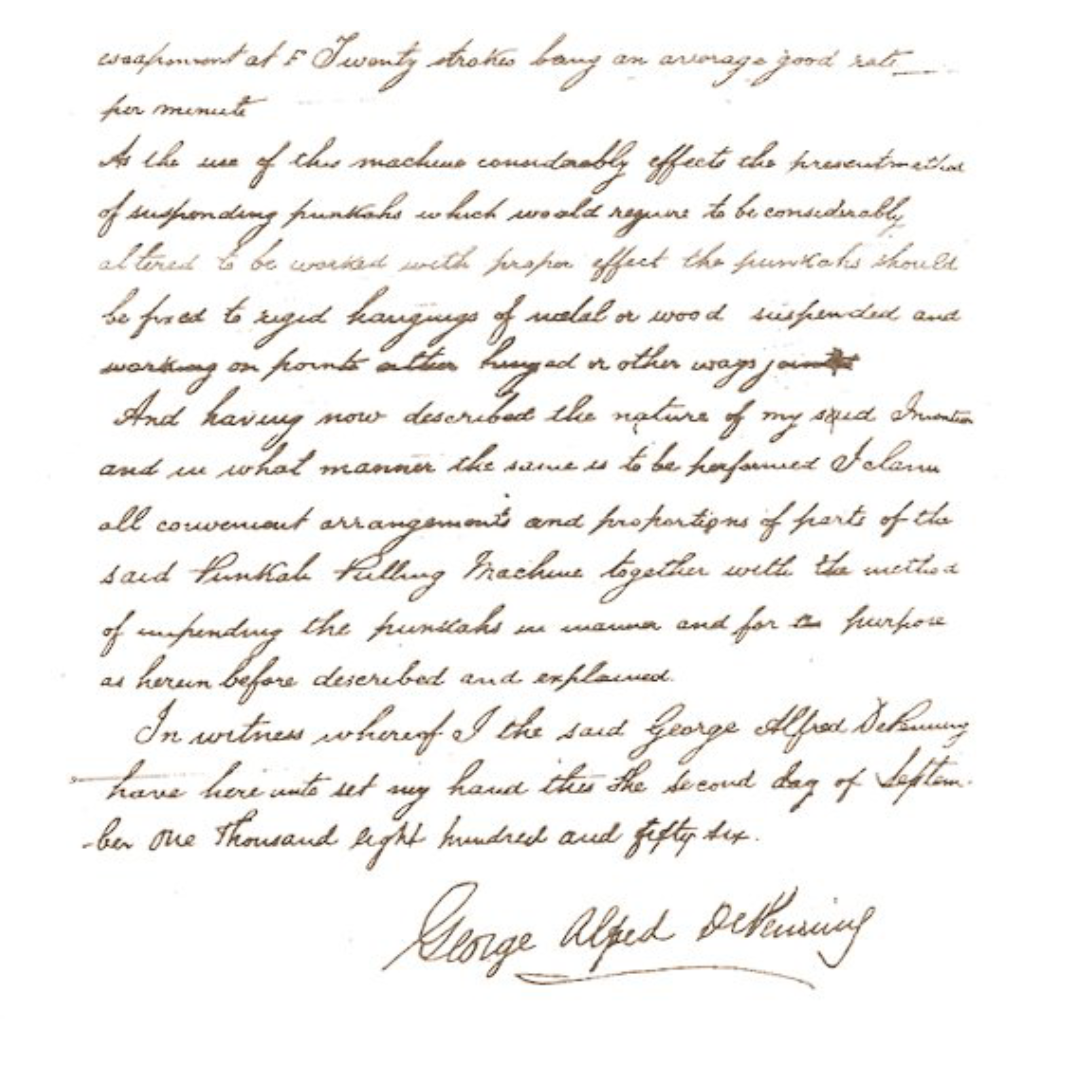 escapement at F Twenty strokes being an average good rate
per minute
As the use of this machine considerably effects the present method
of suspending punkahs which would require to be considerably
altered to be worked with proper effect the punkahs should
be fixed to rigid hangings of metal or wood suspended and
working on points either hinged or other ways
And having now described the nature of my said Invention
and in what manner the same is to be performed I claim
all convenient arrangements and proportions of parts of the
said Punkah Pulling Machine together with the method
of suspending the punkahs in manner and for purpose
as herein before described and explained.
In witness whereof I the said George Alfred DePenning
have here unto set my hand this the second day of Septem-
-ber One Thousand eight hundred and fifty six.
George Alfred DePenning